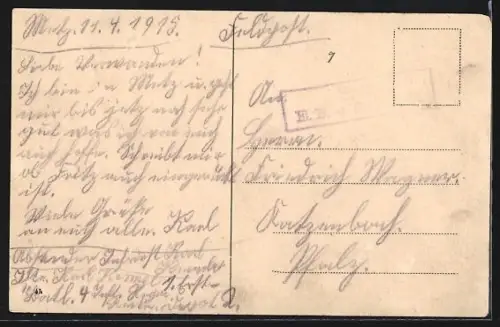 Metz. 11.4.1915.
Liebe Verwanden!
Ich bin in Metz u. geht
mir bis jetz noch sehr
gut was ich von euch
auch hoffe. Schreibt mir
ob Fritz auch eingerückt
ist.
Viele Grüße
an euch alle Karl
Absender
Karl
Batl. 4
Feldpost.
9
An
Herrn.
Friedrich Wagner.
Katzenbach.
Pfalz.